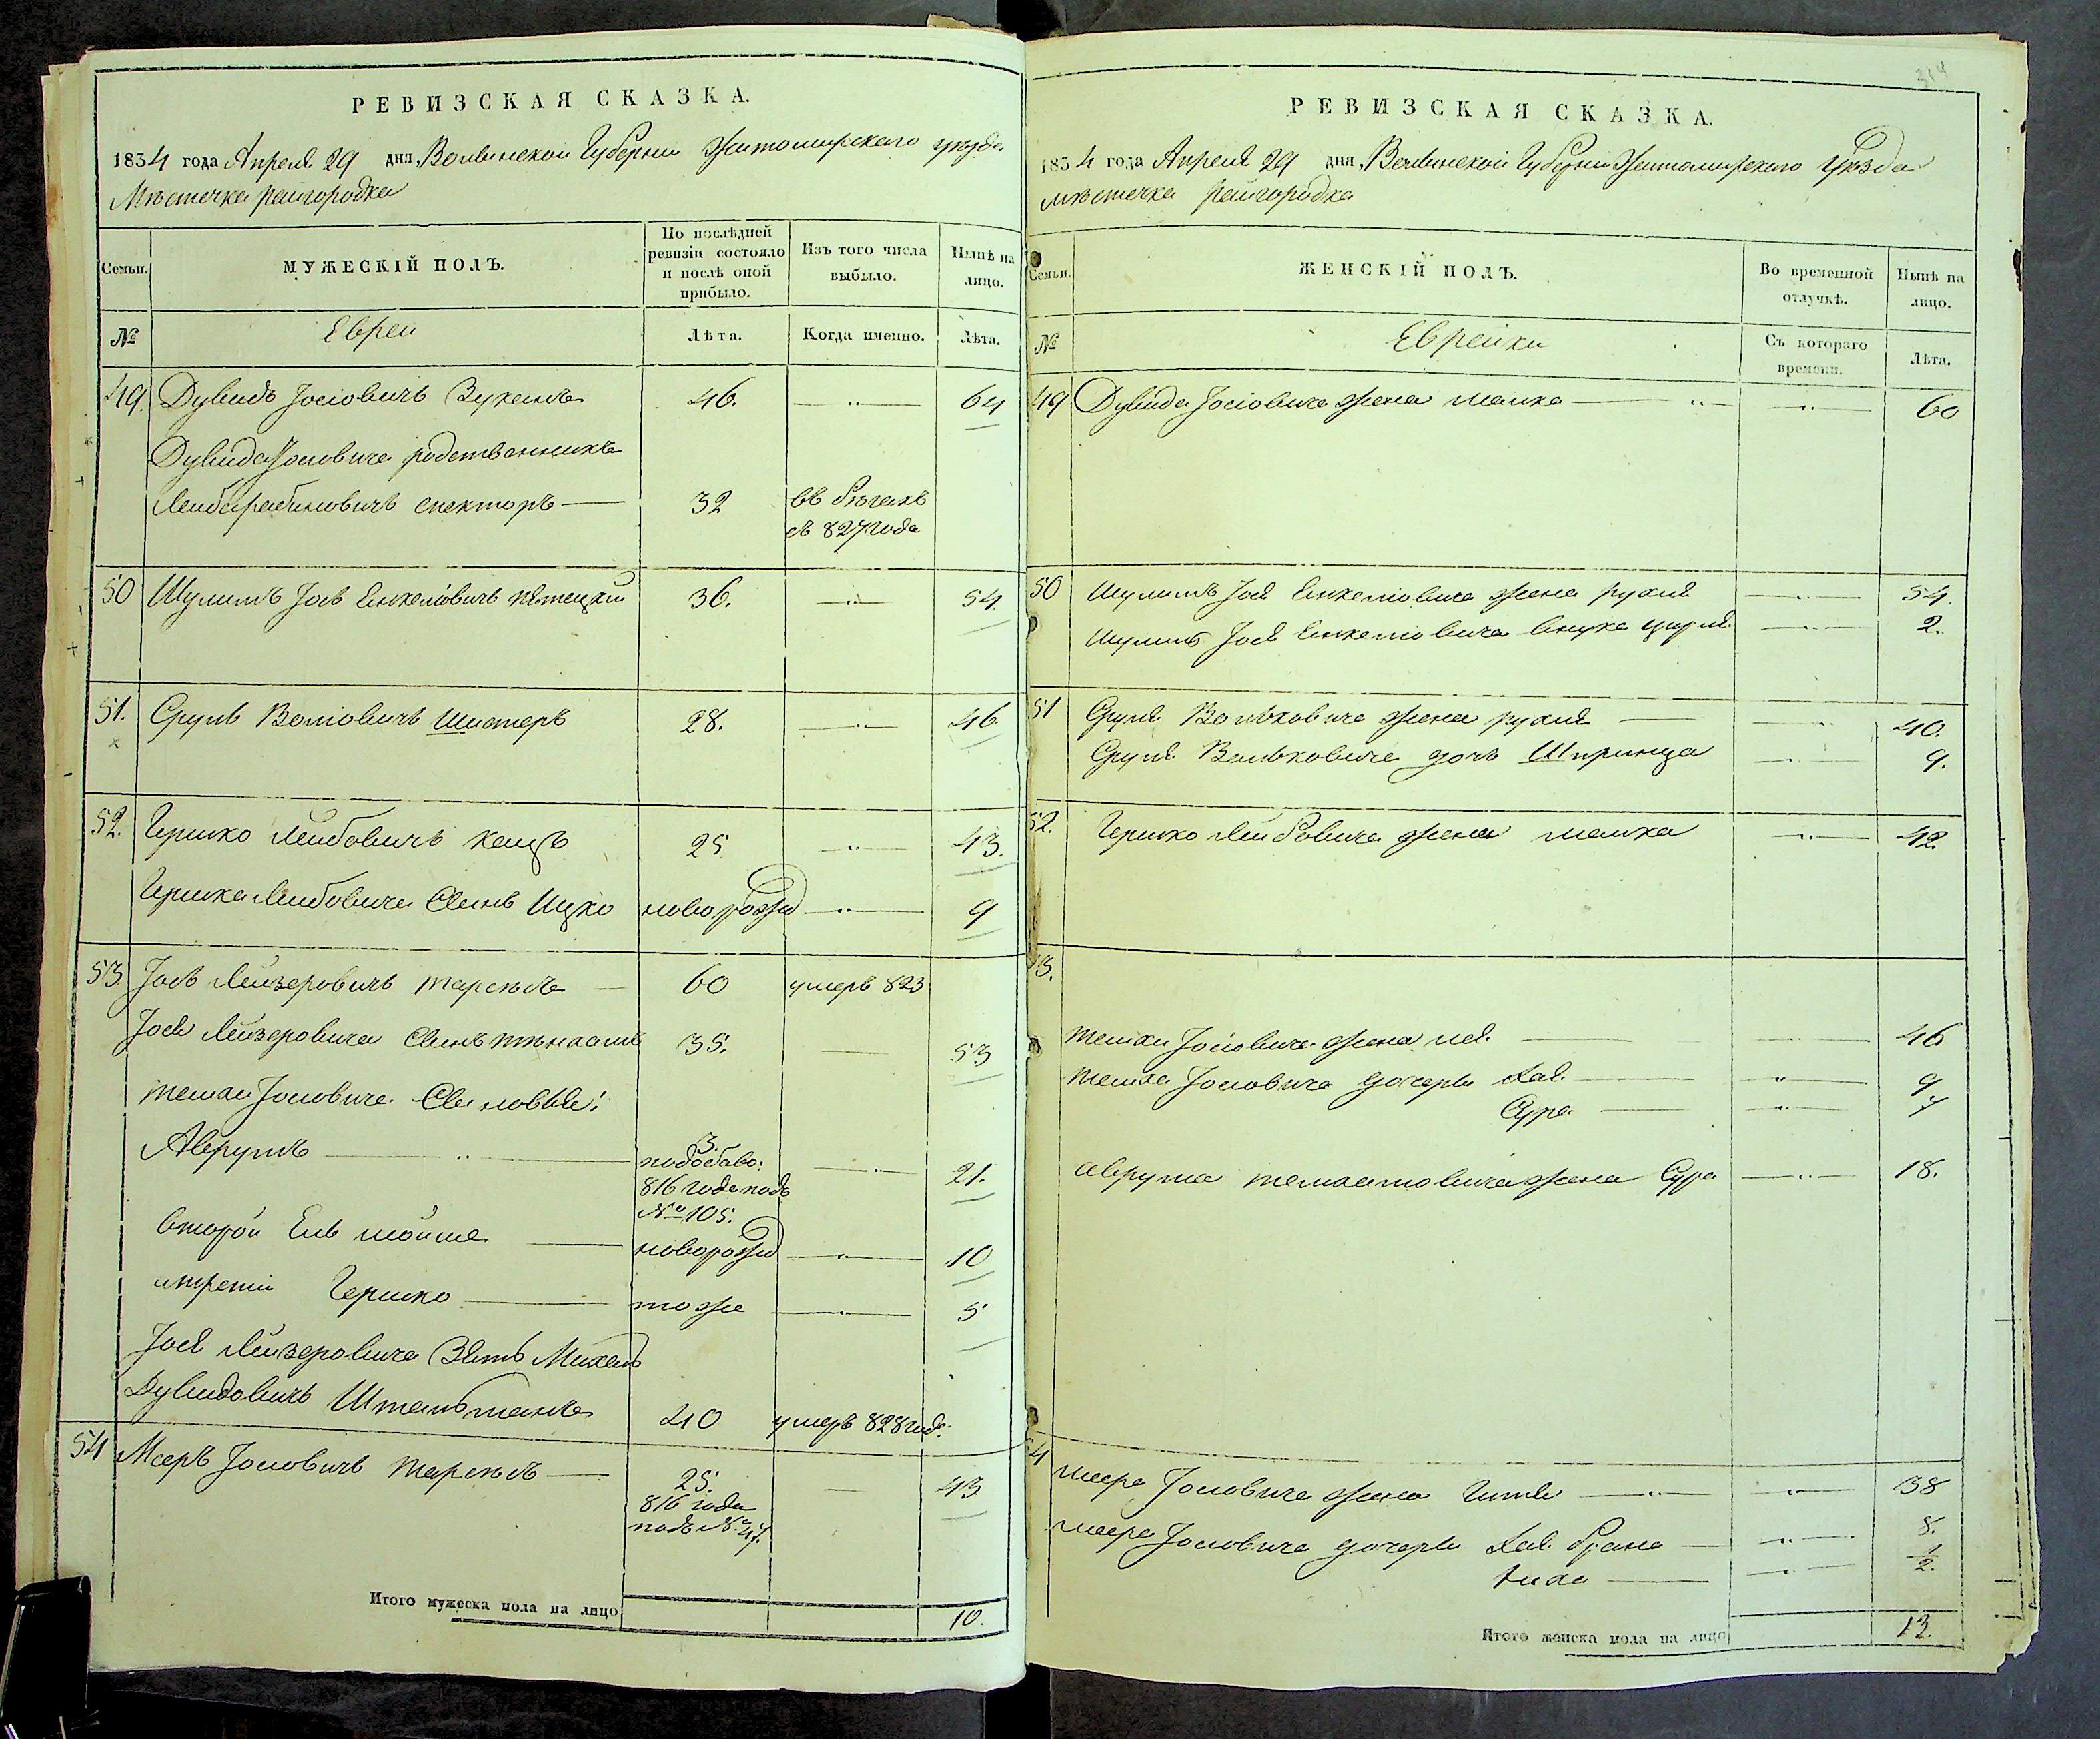 РЕВИЗСКАЯ СКАЗКА.
1834 года Апреля 29 дня, Волынской Губернии Житомирского уѣзда
Мѣстечка Райгородка
Семьи.
МУЖЕСКІЙ ПОЛЪ.
По послѣдней ревизіи состояло и послѣ оной прибыло.
Изъ того числа выбыло.
Нынѣ на лицо.
№ Евреи Лѣта. Когда именно. Лѣта.
49. Дувидъ Іосіовичъ 46. — 64
Дувида Іосіовича родственникъ
Лейба Рабиновичъ спекторъ — 32 въ бѣгахъ
съ 827 года
50 Шулимъ Іось Енкелiовичъ 36. — 54.
51. Сруль Волiовичъ Шистеръ 28. — 46
52. Гершко Лейбовичъ Кацъ 25 — 43.
Гершка Лейбовича Сынъ Ицко новорожд — 9
53 Іось Лейзеровичъ — 60 умеръ 823
Іося Лейзеровича Сынъ 35. — 53
Іосіовича Сыновья:
Аврумъ — 3.
по добаво:
816 года подъ
№ 105. — 21.
Второй Ель Мойше — новорожд — 10
и третій Гершко — тоже — 5
Іося Лейзеровича Зять Михель
Дувидовичъ 40 умеръ 828 год.
54 Мееръ Іосіовичъ — 25.
816 года
подъ № 47. — 43
Итого мужеска пола на лицо 10.
314
РЕВИЗСКАЯ СКАЗКА.
1834 года Апреля 29 дня, Волынской Губерніи Житомирскаго уѣзда
мѣстечка Райгородка
Семьи.
ЖЕНСКІЙ ПОЛЪ.
Во временной отлучкѣ.
Нынѣ на лицо.
№ Еврейки Съ котораго времени. Лѣта.
49 Дувида Іосіовича жена Малка — — 60
50 Шулимъ Іося Енкелiовича жена Рухля — 54.
Шулимъ Іося Енкелiовича внука Цирля — 2.
51 Сруля Вольковича жена Рухля — — 40.
Сруля Вольковича дочь Шпринца — 9.
52. Гершко Лейбовича жена Малка — 42.
53.
Іосіовича жена — — 46
Іосіовича дочери Хая — — 9
Сура — — 7
Аврума жена Сура — 18.
54
Меера Іосіовича жена Гитля — — 38
Меера Іосіовича дочери Хая Брана — — 8.
— — 1/2.
Итого женска пола на лицо 13.